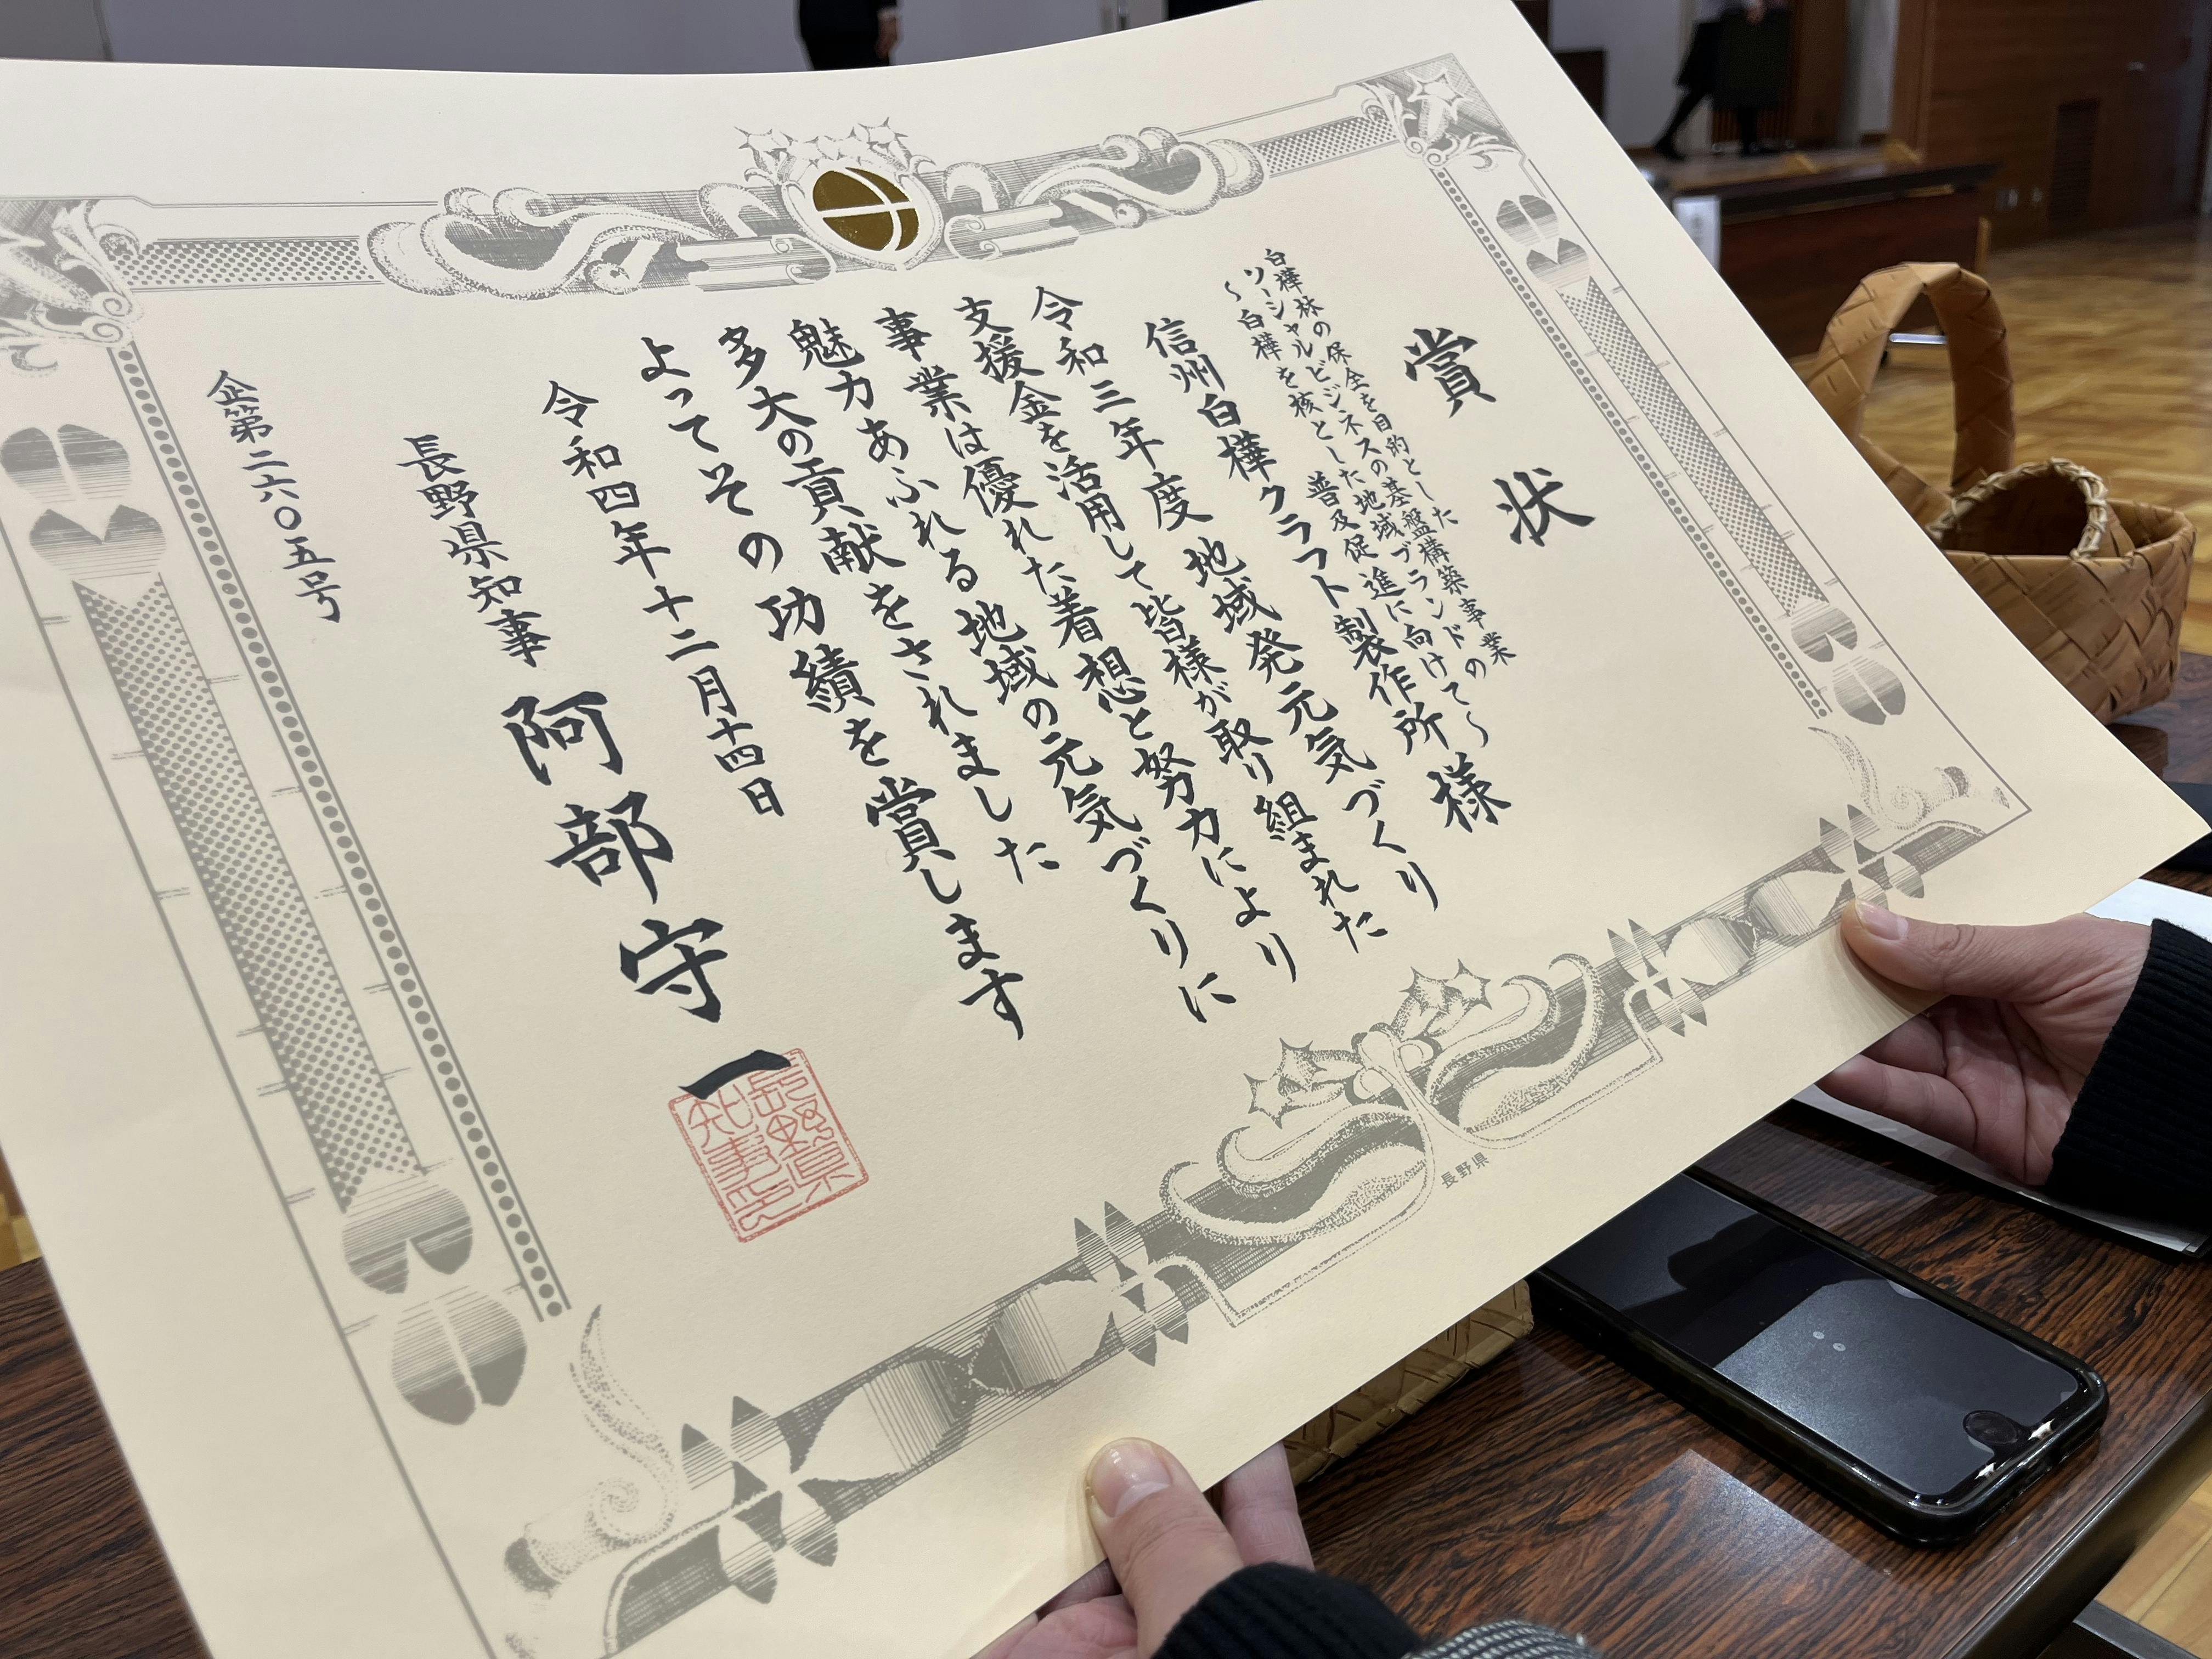 賞状
白樺林の保全を目的とした
ソーシャルビジネスの基盤構築事業
～白樺を核とした地域ブランドの
普及促進に向けて～
信州白樺クラフト製作所様
令和三年度地域発元気づくり
支援金を活用して皆様が取り組まれた
事業は優れた着想と努力により
魅力あふれる地域の元気づくりに
多大の貢献をされました
よってその功績を賞します
令和四年十二月十四日
長野県知事 阿部守一
長野県知事印
企第二六〇五号
長野県